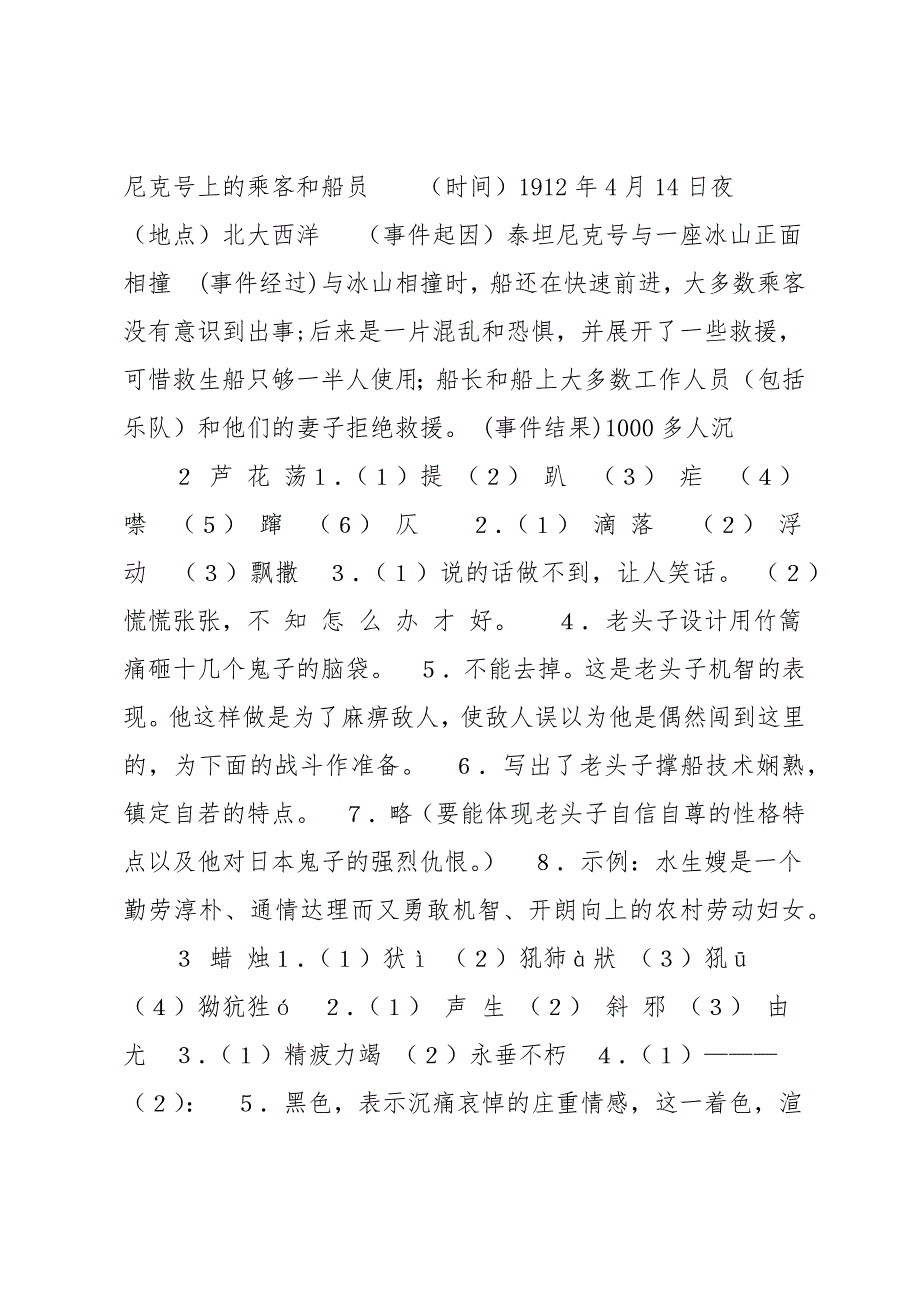 尼克号上的乘客和船员　　（时间）1912 年 4 月 14 日夜
（地点）北大西洋　　（事件起因）泰坦尼克号与一座冰山正面
相撞　(事件经过)与冰山相撞时，船还在快速前进，大多数乘客
没有意识到出事;后来是一片混乱和恐惧，并展开了一些救援，
可惜救生船只够一半人使用；船长和船上大多数工作人员（包括
乐队）和他们的妻子拒绝救援。 (事件结果)1000 多人沉
２ 芦 花 荡１.（１）提 （２） 趴　（３） 疟　（４）
噤　（５） 蹿　（６） 仄　　２.（１） 滴 落　　（２） 浮
动　（３）飘撒　３.（１）说的话做不到，让人笑话。 （２）
慌慌张张，不 知 怎 么 办 才 好。　４．老头子设计用竹篙
痛砸十几个鬼子的脑袋。　５．不能去掉。这是老头子机智的表
现。他这样做是为了麻痹敌人，使敌人误以为他是偶然闯到这里
的，为下面的战斗作准备。　６．写出了老头子撑船技术娴熟，
镇定自若的特点。　７．略（要能体现老头子自信自尊的性格特
点以及他对日本鬼子的强烈仇恨。）　８．示例：水生嫂是一个
勤劳淳朴、通情达理而又勇敢机智、开朗向上的农村劳动妇女。
３ 蜡 烛１.（１）犾ì （２）犼犻à狀 （３）犼ū
（４）狕犺狌ó　２.（１） 声 生 （２） 斜 邪 （３） 由
尤　３.（１）精疲力竭 （２）永垂不朽　４.（１）———
（２）：　５．黑色，表示沉痛哀悼的庄重情感，这一着色，渲